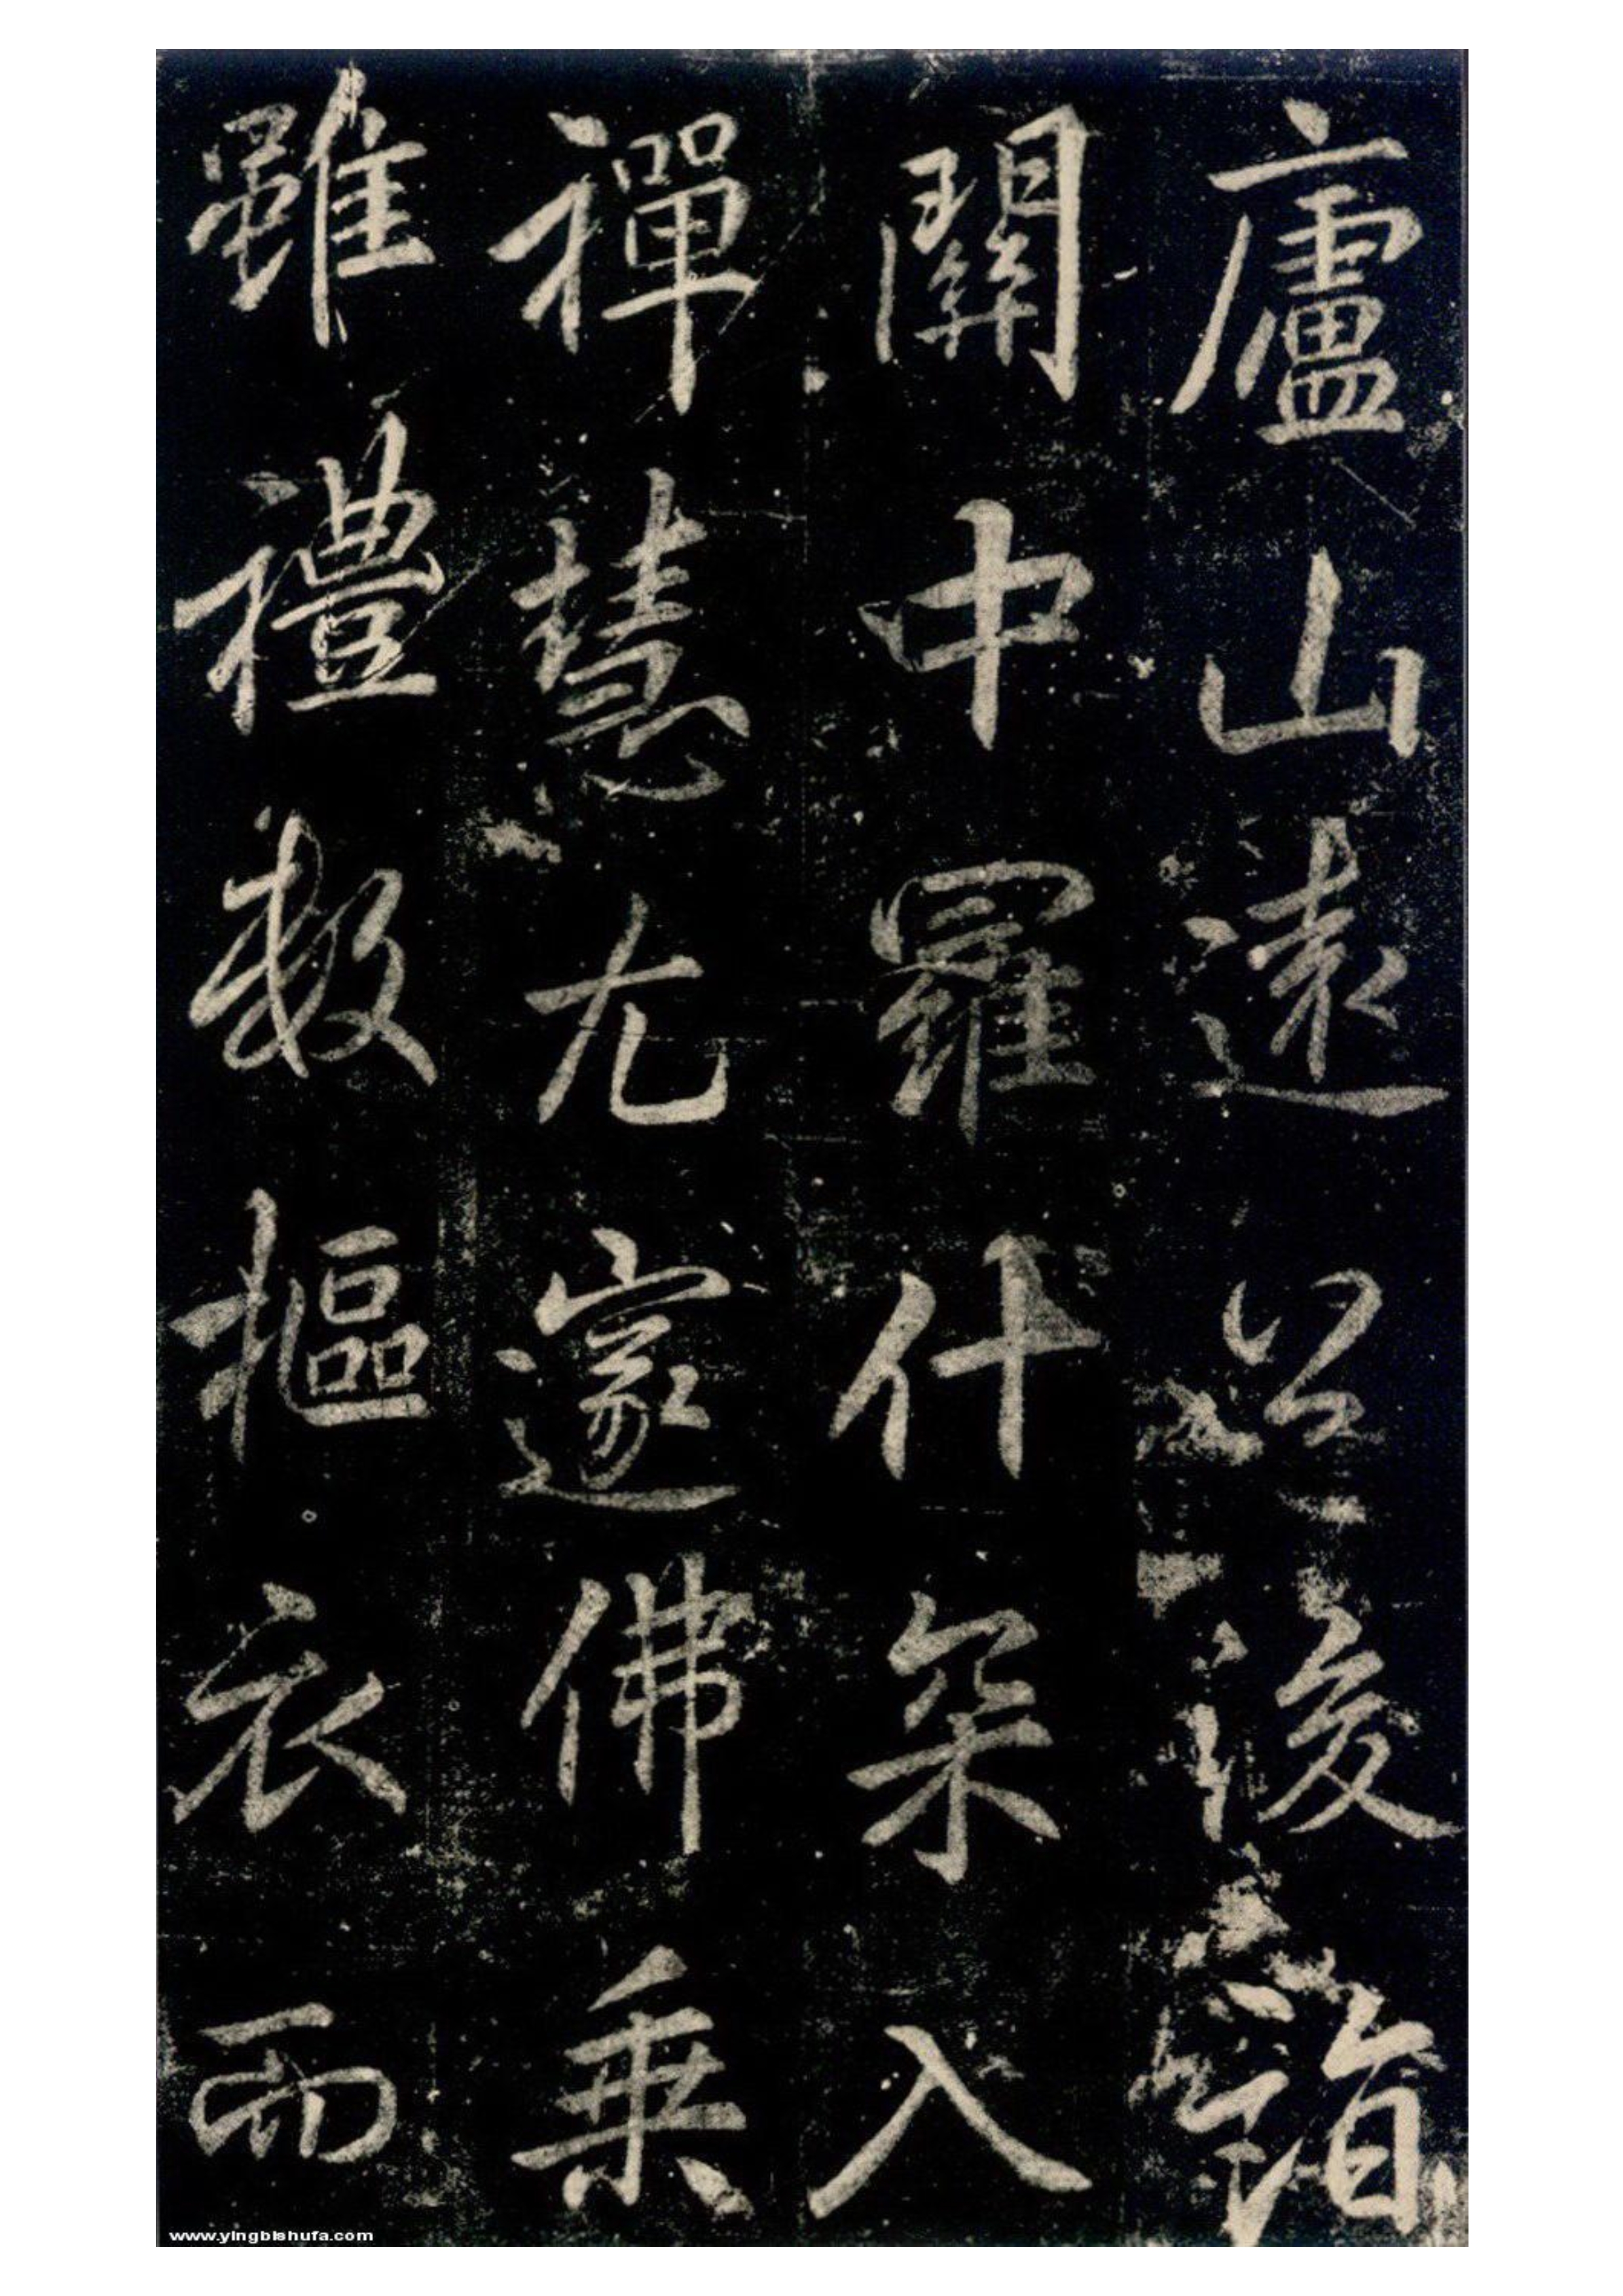 廬山遠公後詣
關中羅什罙入
禪慧尤邃佛乘
雖禮數摳衣而
www.yingbishufa.com